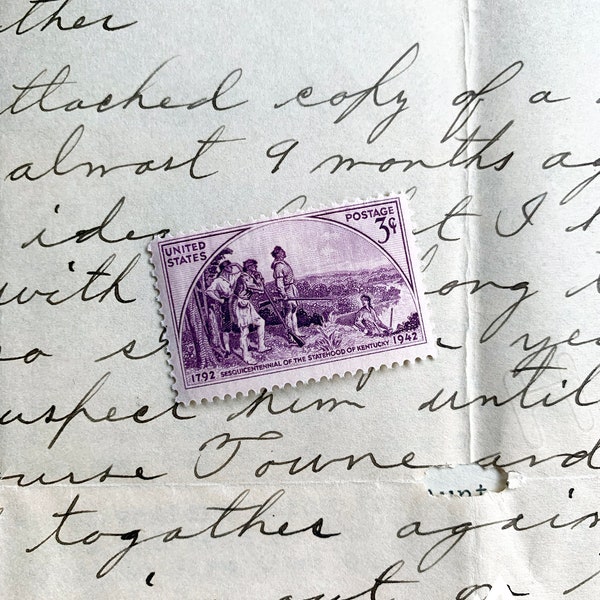 ther
ttached copy of a
almost 9 months ag
idea t I h
with long t
so s yea
uspect him until
ourse Towne and
unt
togather again
out a
UNITED STATES
POSTAGE
3¢
1792 SESQUICENTENNIAL OF THE STATEHOOD OF KENTUCKY 1942